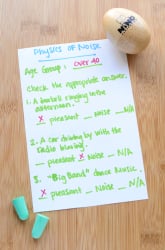 Physics of Noise
Age Group: Over 40
Check the appropriate answer.
1. A doorbell ringing in the
afternoon.
X pleasant __ Noise __ N/A
2. A car driving by with the
radio blaring.
__ pleasant X Noise __ N/A
3. "Big Band" dance Music.
X pleasant __ Noise __ N/A